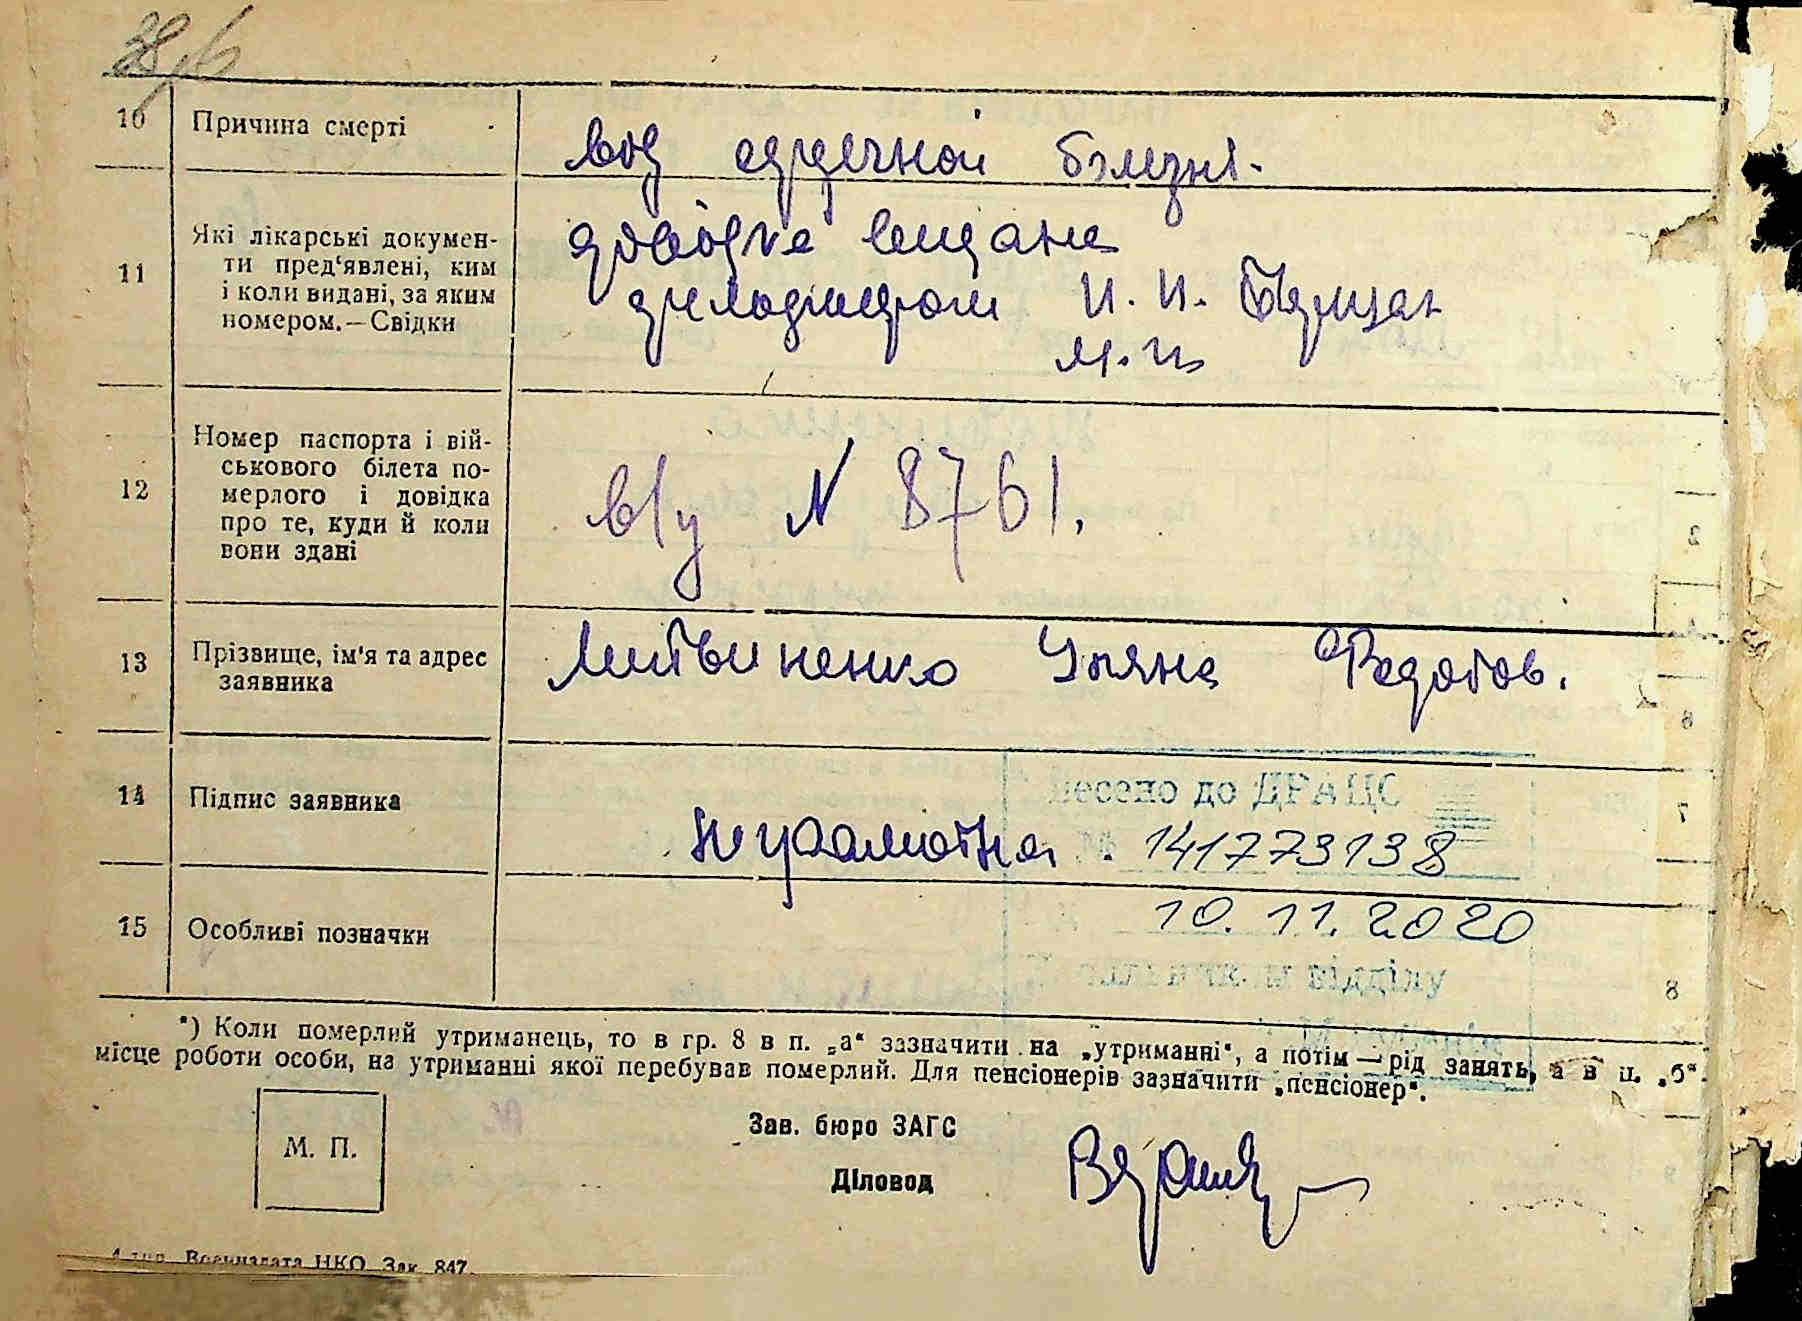 10 Причина смерті вод сердечной болезні.
11 Які лікарські докумен-
ти пред'явлені, ким
і коли видані, за яким
номером.—Свідки
довідка видана
И. И.
м.п
12 Номер паспорта і вій-
ськового білета по-
мерлого і довідка
про те, куди й коли
вони здані
в/у N 8761.
13 Прізвище, ім'я та адрес
заявника
Литвиненко Уляна Федотов.
14 Підпис заявника
неграмотна
до ДРАЦС
№ 141773138
10.11.2020
15 Особливі позначки
відділу
*) Коли померлий утриманець, то в гр. 8 в п. „а“ зазначити на „утриманні“, а потім — рід занять, а в п. „б“-
місце роботи особи, на утриманні якої перебував померлий. Для пенсіонерів зазначити „пенсіонер“.
М. П.
Зав. бюро ЗАГС
Діловод
Воениздата НКО Зак. 847